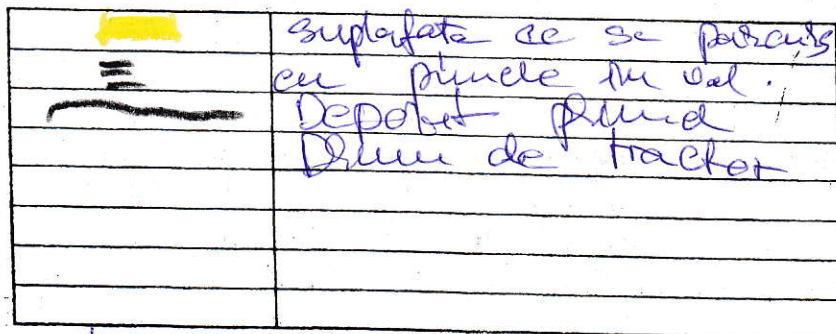 suplafata ce se parcurs
cu puncte in val.
Depozit primd
Drum de tractor